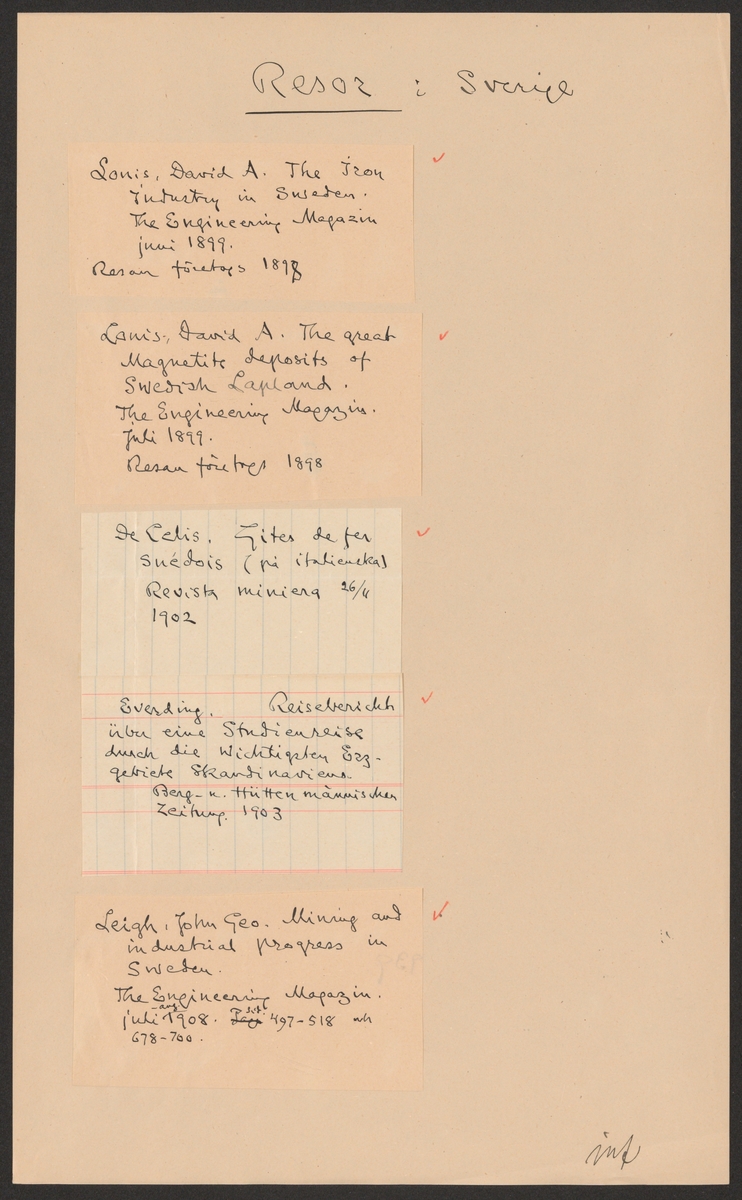 Resor i Sverige
Louis, David A. The Iron
Industry in Sweden.
The Engineering Magazin
juni 1899.
Resan företogs 1898
Louis, David A. The great
Magnetite deposits of
Swedish Lapland.
The Engineering Magazin.
Juli 1899.
Resan företogs 1898
De Celis. Gites de fer
suédois (på italienska)
Revista miniera 26/11
1902
Everding. Reisebericht
über eine Studienreise
durch die Wichtigsten Erz-
gebiete Skandinaviens
Berg- u. Hüttenmännischen
Zeitung. 1903
Leigh, John Geo. Mining and
industrial progress in
Sweden.
The Engineering Magazin.
juli-aug 1908. sid 497-518 och
678-700.